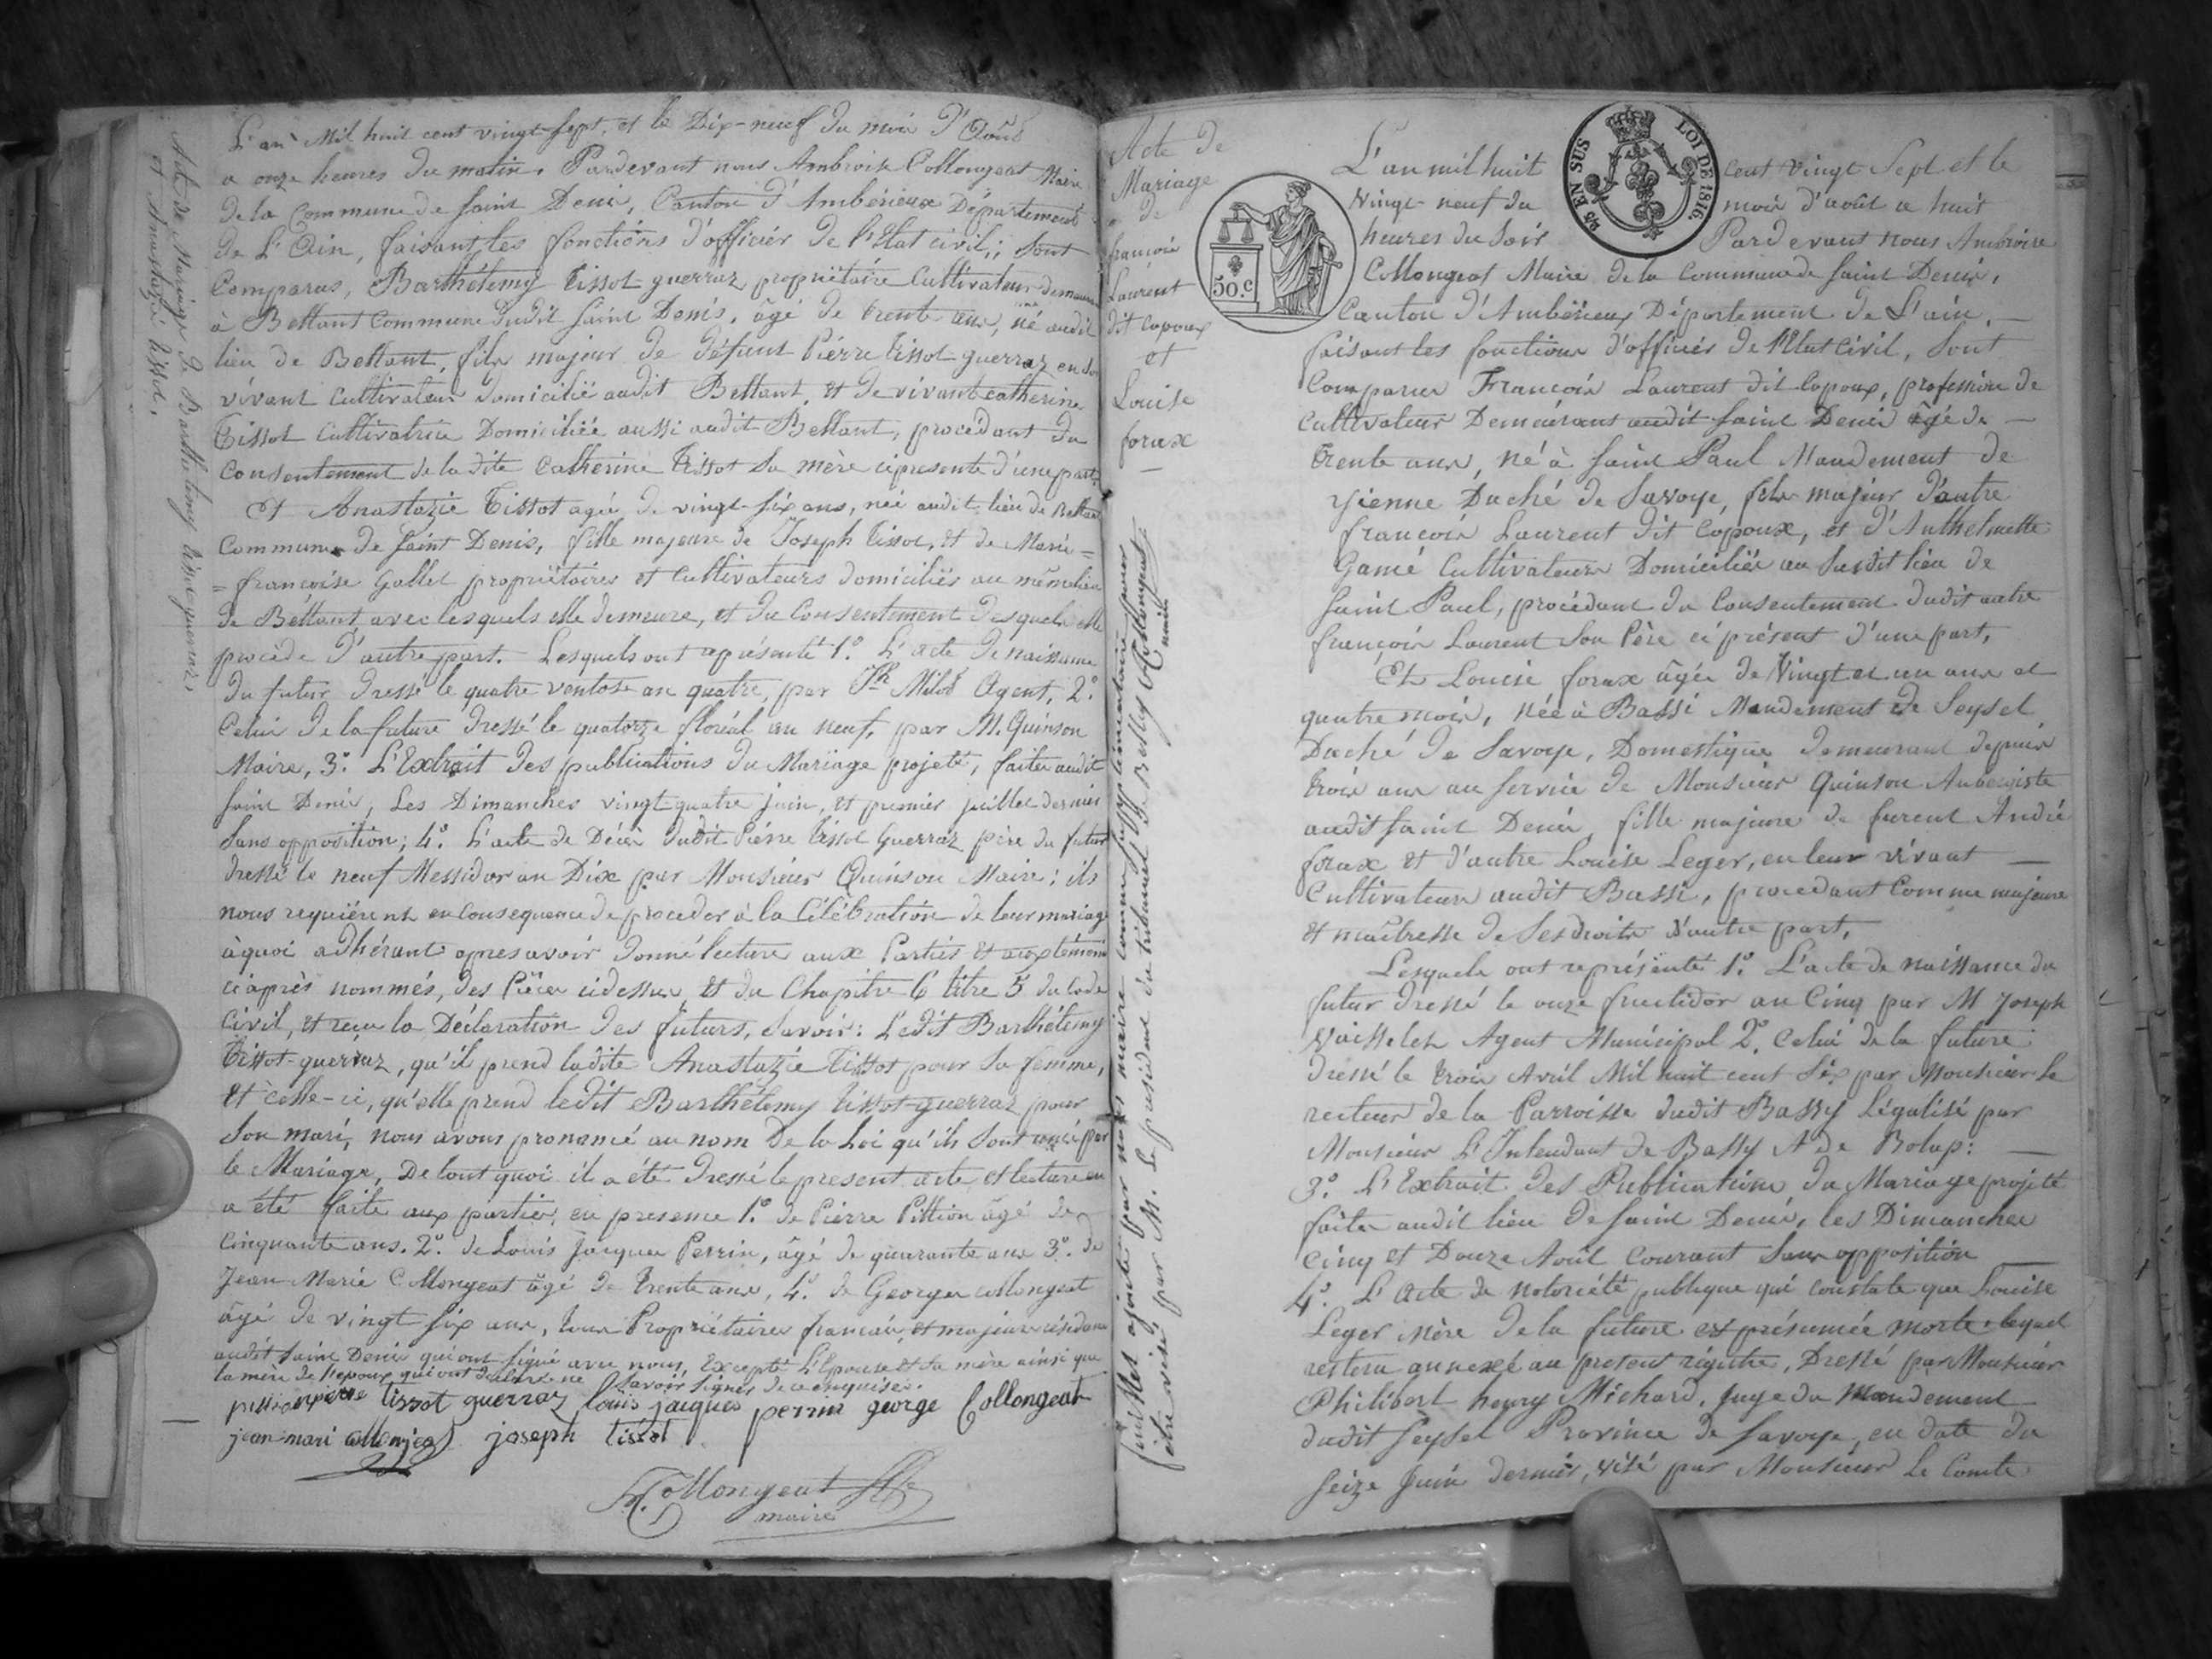 Acte de Mariage de Barthelemy tissot guerraz,
et Anastazie tissot.
L'an Mil huit cent vingt-sept, et le Dix-neuf du mois d'Août
a onze heures du matin. Pardevant nous Ambroise Collongeat Maire
de la Commune de Saint Denis, Canton d'Ambérieux Département
de L'Ain, faisant les fonctions d'officier de l'Etat civil; sont
Comparus, Barthélemy tissot guerraz propriétaire Cultivateur demeurant
à Bettant Commune dudit Saint Denis, âgé de trente ans, né audit
lieu de Bettant, fils majeur de défunt Pierre tissot guerraz en son
vivant Cultivateur domicilié audit Bettant, et de vivant catherine
Tissot Cultivatrice Domiciliée aussi audit Bettant, procedant du
Consentement de la dite Catherine Tissot sa mère ci presente d'une part
Et Anastazie Tissot agée de vingt-six ans, née audit lieu de Bettant
Commune de Saint Denis, fille majeure de Joseph tissot, et de Marie =
= françoise Gallet propriétaires et Cultivateurs domiciliés au même lieu
de Bettant, avec lesquels elle demeure, et du Consentement desquels elle
procède d'autre part. Lesquels ont représenté 1.º L'acte de naissance
du futur dressé le quatre ventose an quatre, par Milod Agent, 2.º
Celui de la future dressé le quatorze floréal an neuf, par M. Quinson
Maire, 3.º L'Extrait des publications du Mariage projeté, faites audit
Saint Denis, Les Dimanches vingt-quatre juin, et premier juillet dernier
Sans opposition; 4.º L'acte de Décès dudit Pierre tissot Guerraz père du futur
dressé le neuf Messidor an Dix par Monsieur Quinson Maire; ils
nous requièrent en Consequence de proceder à la Célébration de leur mariage
à quoi adhérant apres avoir donné lecture aux Parties et aux témoins
ci après nommés, des Pièces cidessus, et du Chapitre 6 titre 5 du Code
Civil, et reçu la Déclaration des futurs, Savoir: Ledit Barthélemy
Tissot-guerraz, qu'il prend ladite Anastazie Tissot pour sa femme,
Et celle-ci, qu'elle prend ledit Barthélemy tissot-guerraz pour
Son mari, nous avons prononcé au nom De la Loi qu'ils sont unis par
le Mariage, De tout quoi il a été dressé le present acte et lecture en
a été faite aux parties, en presence 1.º de Pierre Pittion âgé de
Cinquante ans. 2.º de Louis Jacques Perrin, âgé de quarante ans 3.º de
Jean Marie Collongeat âgé de trente ans, 4.º de George collongeat
âgé de vingt six ans, tous Propriétaires français, et majeurs résidans
audit Saint Denis qui ont signé avec nous, excepté L'Epouse et sa mère ainsi que
la mère de l'epoux qui ont déclaré ne Savoir Signer de ce enquises.
pittion pierre tissot guerraz louis jacques perrin george Collongeat
jean mari collonjeat joseph tissot
Collongeat
maire
feuillet ajouté par nous maire comme supplémentaire pour
être visé, par M. Le président du tribunal de Belley Collongeat
maire
Acte de
Mariage
de
françois
Laurent
dit Copoux
et
Louise
forax
50.c
25 EN SUS
LOI DE 1816.
L'an mil huit cent vingt Sept et le
Vingt-neuf du mois d'août a huit
heures du Soir Pardevant nous Ambroise
Collongeat Maire de la Commune de Saint Denis,
Canton d'Ambérieux Département de L'ain,
faisant les fonctions d'officier de l'Etat civil, Sont
Comparus François Laurent dit Copoux, profession de
Cultivateur Demeurant audit Saint Denis âgé de
trente ans, né à Saint Paul Mandement de
Yienne Duché de Savoye, fils majeur d'autre
françois Laurent dit Copoux, et d'Anthelmette
Gamé Cultivateurs Domiciliés au Susdit lieu de
Saint Paul, procédant du Consentement dudit autre
françois Laurent son Père ci présent d'une part,
Et Louise forax âgée de Vingt et un ans et
quatre mois, née à Bassi Mandement de Seysel
Duché de Savoye, Domestique demeurant depuis
trois ans au service de Monsieur Quinson Aubergiste
audit Saint Denis, fille majeure de furent André
forax et d'autre Louise Leger, en leur vivant
Cultivateurs audit Bassi, procedant Comme majeure
et maîtresse de Ses droits d'autre part,
Lesquels ont représenté 1.º L'acte de naissance du
futur dressé le onze fructidor an Cinq par M Joseph
Vaisselet Agent Municipal 2.º Celui de la future
dressé le trois Avril Mil huit cent Six par Monsieur le
recteur de la Parroisse dudit Bassy Légalisé par
Monsieur L'Intendant de Bassy
3.º L'Extrait des Publications du Mariage projeté
faites audit lieu de Saint Denis, les Dimanches
Cinq et Douze Août Courant Sans opposition
4.º L'Acte de notoriété publique qui constate que Louise
Leger mère de la future est présumée morte, lequel
restera annexé au present régistre, Dressé par Monsieur
Philibert henry Michard, Juge du Mandement
dudit Seysel Province de Savoye, en date du
Seize Juin dernier, visé par Monsieur Le Comte